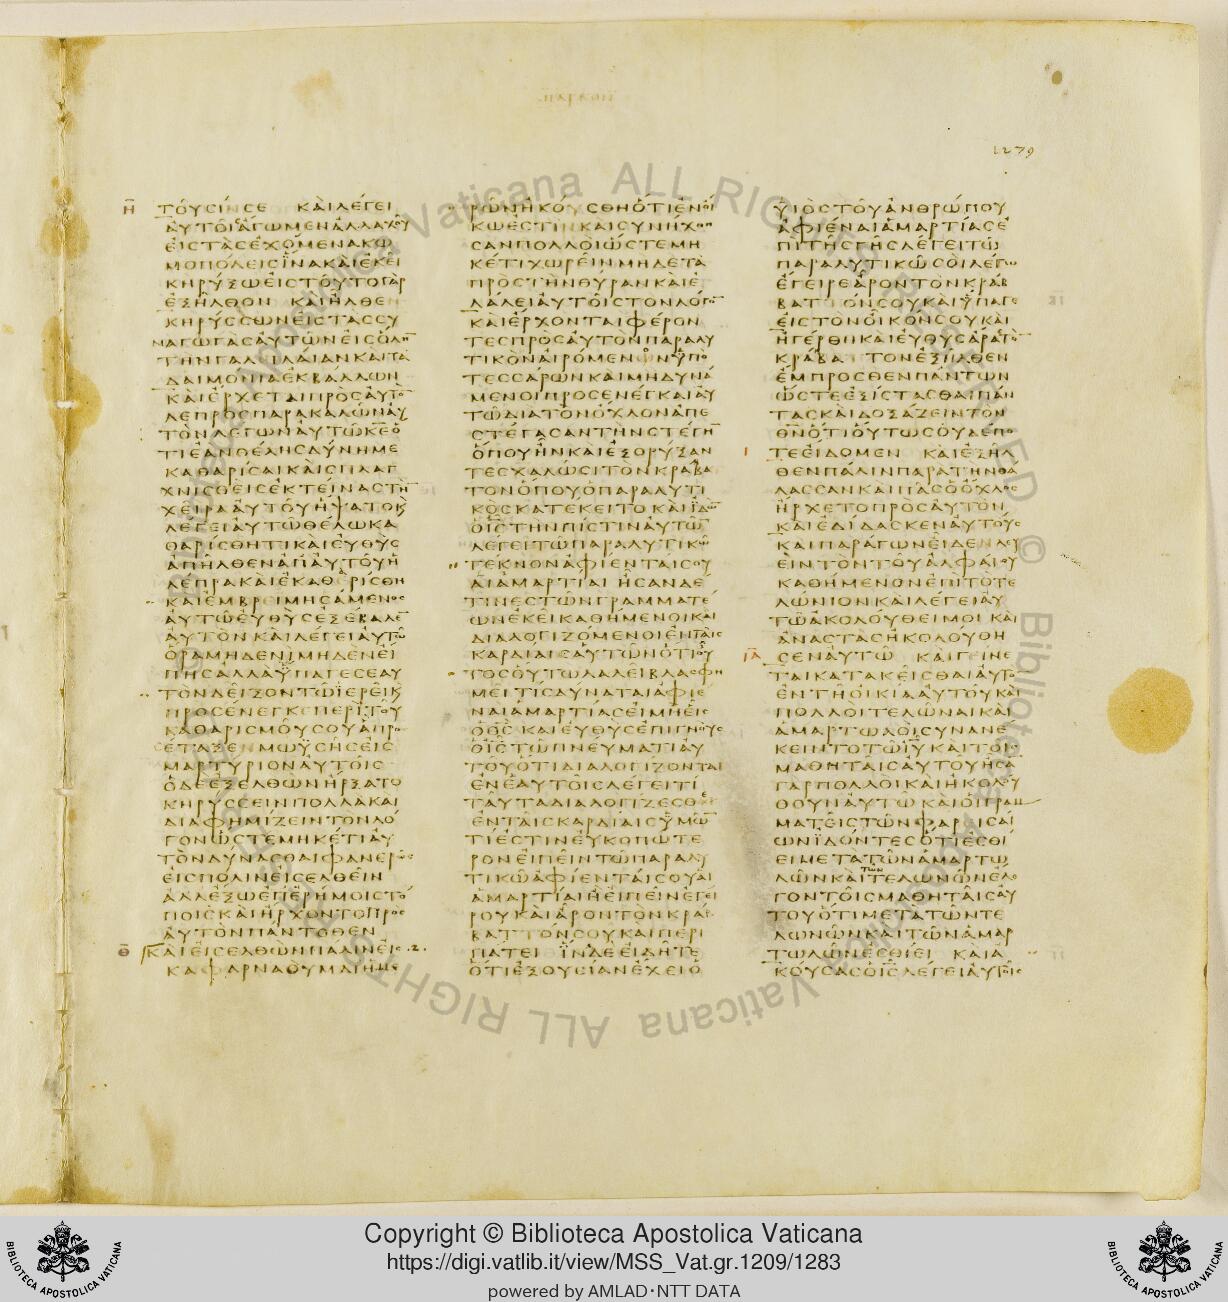 1279
Η
ΤΟΥΣΙΝ ΣΕ ΚΑΙ ΛΕΓΕΙ
ΑΥΤΟΙΣ ΑΓΩΜΕΝ ΑΛΛΑΧΟΥ
ΕΙΣ ΤΑΣ ΕΧΟΜΕΝΑΣ ΚΩ
ΜΟΠΟΛΕΙΣ ΙΝΑ ΚΑΙ ΕΚΕΙ
ΚΗΡΥΞΩ ΕΙΣ ΤΟΥΤΟ ΓΑΡ
ΕΞΗΛΘΟΝ ΚΑΙ ΗΛΘΕΝ
ΚΗΡΥΣΣΩΝ ΕΙΣ ΤΑΣ ΣΥ
ΝΑΓΩΓΑΣ ΑΥΤΩΝ ΕΙΣ ΟΛΗ
ΤΗΝ ΓΑΛΙΛΑΙΑΝ ΚΑΙ ΤΑ
ΔΑΙΜΟΝΙΑ ΕΚΒΑΛΛΩΝ
ΚΑΙ ΕΡΧΕΤΑΙ ΠΡΟΣ ΑΥΤΟ
ΛΕΠΡΟΣ ΠΑΡΑΚΑΛΩΝ ΑΥ
ΤΟΝ ΛΕΓΩΝ ΑΥΤΩ ΚΕ Ο
ΤΙ ΕΑΝ ΘΕΛΗΣ ΔΥΝΗ ΜΕ
ΚΑΘΑΡΙΣΑΙ ΚΑΙ ΣΠΛΑΓ
ΧΝΙΣΘΕΙΣ ΕΚΤΕΙΝΑΣ ΤΗ
ΧΕΙΡΑ ΑΥΤΟΥ ΗΨΑΤΟ Κ
ΛΕΓΕΙ ΑΥΤΩ ΘΕΛΩ ΚΑ
ΘΑΡΙΣΘΗΤΙ ΚΑΙ ΕΥΘΥΣ
ΑΠΗΛΘΕΝ ΑΠ ΑΥΤΟΥ Η
ΛΕΠΡΑ ΚΑΙ ΕΚΑΘΕΡΙΣΘΗ
ΚΑΙ ΕΜΒΡΕΙΜΗΣΑΜΕΝΟΣ
ΑΥΤΩ ΕΥΘΥΣ ΕΞΕΒΑΛΕ
ΑΥΤΟΝ ΚΑΙ ΛΕΓΕΙ ΑΥΤΩ
ΟΡΑ ΜΗΔΕΝΙ ΜΗΔΕΝ ΕΙ
ΠΗΣ ΑΛΛΑ ΫΠΑΓΕ ΣΕΑΥ
ΤΟΝ ΔΕΙΞΟΝ ΤΩ ΙΕΡΕΙ Κ
ΠΡΟΣΕΝΕΓΚΕ ΠΕΡΙ ΤΟΥ
ΚΑΘΑΡΙΣΜΟΥ ΣΟΥ Α ΠΡΟ
ΣΕΤΑΞΕΝ ΜΩΫΣΗΣ ΕΙΣ
ΜΑΡΤΥΡΙΟΝ ΑΥΤΟΙΣ
Ο ΔΕ ΕΞΕΛΘΩΝ ΗΡΞΑΤΟ
ΚΗΡΥΣΣΕΙΝ ΠΟΛΛΑ ΚΑΙ
ΔΙΑΦΗΜΙΖΕΙΝ ΤΟΝ ΛΟ
ΓΟΝ ΩΣΤΕ ΜΗΚΕΤΙ ΑΥ
ΤΟΝ ΔΥΝΑΣΘΑΙ ΦΑΝΕΡΩΣ
ΕΙΣ ΠΟΛΙΝ ΕΙΣΕΛΘΕΙΝ
ΑΛΛ ΕΞΩ ΕΠ ΕΡΗΜΟΙΣ ΤΟ
ΠΟΙΣ ΚΑΙ ΗΡΧΟΝΤΟ ΠΡΟΣ
ΑΥΤΟΝ ΠΑΝΤΟΘΕΝ
Θ
ΚΑΙ ΕΙΣΕΛΘΩΝ ΠΑΛΙΝ ΕΙΣ .2.
ΚΑΦΑΡΝΑΟΥΜ ΔΙ ΗΜΕ
ΡΩΝ ΗΚΟΥΣΘΗ ΟΤΙ ΕΝ ΟΙ
ΚΩ ΕΣΤΙΝ ΚΑΙ ΣΥΝΗΧΘΗ
ΣΑΝ ΠΟΛΛΟΙ ΩΣΤΕ ΜΗ
ΚΕΤΙ ΧΩΡΕΙΝ ΜΗΔΕ ΤΑ
ΠΡΟΣ ΤΗΝ ΘΥΡΑΝ ΚΑΙ Ε
ΛΑΛΕΙ ΑΥΤΟΙΣ ΤΟΝ ΛΟΓΟ
ΚΑΙ ΕΡΧΟΝΤΑΙ ΦΕΡΟΝ
ΤΕΣ ΠΡΟΣ ΑΥΤΟΝ ΠΑΡΑΛΥ
ΤΙΚΟΝ ΑΙΡΟΜΕΝΟΝ ΫΠΟ
ΤΕΣΣΑΡΩΝ ΚΑΙ ΜΗ ΔΥΝΑ
ΜΕΝΟΙ ΠΡΟΣΕΝΕΓΚΑΙ ΑΥ
ΤΩ ΔΙΑ ΤΟΝ ΟΧΛΟΝ ΑΠΕ
ΣΤΕΓΑΣΑΝ ΤΗΝ ΣΤΕΓΗ
ΟΠΟΥ ΗΝ ΚΑΙ ΕΞΟΡΥΞΑΝ
ΤΕΣ ΧΑΛΩΣΙ ΤΟΝ ΚΡΑΒΑ
ΤΟΝ ΟΠΟΥ Ο ΠΑΡΑΛΥΤΙ
ΚΟΣ ΚΑΤΕΚΕΙΤΟ ΚΑΙ ΙΔΩ
Ο ΙΣ ΤΗΝ ΠΙΣΤΙΝ ΑΥΤΩ
ΛΕΓΕΙ ΤΩ ΠΑΡΑΛΥΤΙΚΩ
ΤΕΚΝΟΝ ΑΦΙΕΝΤΑΙ ΣΟΥ
ΑΙ ΑΜΑΡΤΙΑΙ ΗΣΑΝ ΔΕ
ΤΙΝΕΣ ΤΩΝ ΓΡΑΜΜΑΤΕ
ΩΝ ΕΚΕΙ ΚΑΘΗΜΕΝΟΙ ΚΑΙ
ΔΙΑΛΟΓΙΖΟΜΕΝΟΙ ΕΝ ΤΑΙΣ
ΚΑΡΔΙΑΙΣ ΑΥΤΩΝ ΟΤΙ ΟΥ
ΤΟΣ ΟΥΤΩ ΛΑΛΕΙ ΒΛΑΣΦΗ
ΜΕΙ ΤΙΣ ΔΥΝΑΤΑΙ ΑΦΙΕ
ΝΑΙ ΑΜΑΡΤΙΑΣ ΕΙ ΜΗ ΕΙΣ
Ο ΘΣ ΚΑΙ ΕΥΘΥΣ ΕΠΙΓΝΟΥΣ
Ο ΙΣ ΤΩ ΠΝΕΥΜΑΤΙ ΑΥ
ΤΟΥ ΟΤΙ ΔΙΑΛΟΓΙΖΟΝΤΑΙ
ΕΝ ΕΑΥΤΟΙΣ ΛΕΓΕΙ ΤΙ
ΤΑΥΤΑ ΔΙΑΛΟΓΙΖΕΣΘΕ
ΕΝ ΤΑΙΣ ΚΑΡΔΙΑΙΣ ΫΜΩ
ΤΙ ΕΣΤΙΝ ΕΥΚΟΠΩΤΕ
ΡΟΝ ΕΙΠΕΙΝ ΤΩ ΠΑΡΑΛΥ
ΤΙΚΩ ΑΦΙΕΝΤΑΙ ΣΟΥ ΑΙ
ΑΜΑΡΤΙΑΙ Η ΕΙΠΕΙΝ ΕΓΕΙ
ΡΟΥ ΚΑΙ ΑΡΟΝ ΤΟΝ ΚΡΑ
ΒΑΤΤΟΝ ΣΟΥ ΚΑΙ ΠΕΡΙ
ΠΑΤΕΙ ΪΝΑ ΔΕ ΕΙΔΗΤΕ
ΟΤΙ ΕΞΟΥΣΙΑΝ ΕΧΕΙ Ο
ΫΙΟΣ ΤΟΥ ΑΝΘΡΩΠΟΥ
ΑΦΙΕΝΑΙ ΑΜΑΡΤΙΑΣ Ε
ΠΙ ΤΗΣ ΓΗΣ ΛΕΓΕΙ ΤΩ
ΠΑΡΑΛΥΤΙΚΩ ΣΟΙ ΛΕΓΩ
ΕΓΕΙΡΕ ΑΡΟΝ ΤΟΝ ΚΡΑΒ
ΒΑΤΤΟΝ ΣΟΥ ΚΑΙ ΫΠΑΓΕ
ΕΙΣ ΤΟΝ ΟΙΚΟΝ ΣΟΥ ΚΑΙ
ΗΓΕΡΘΗ ΚΑΙ ΕΥΘΥΣ ΑΡΑΣ ΤΟ
ΚΡΑΒΑΤΤΟΝ ΕΞΗΛΘΕΝ
ΕΜΠΡΟΣΘΕΝ ΠΑΝΤΩΝ
ΩΣΤΕ ΕΞΙΣΤΑΣΘΑΙ ΠΑΝ
ΤΑΣ ΚΑΙ ΔΟΞΑΖΕΙΝ ΤΟΝ
ΘΝ ΟΤΙ ΟΥΤΩΣ ΟΥΔΕΠΟ
Ι
ΤΕ ΕΙΔΟΜΕΝ ΚΑΙ ΕΞΗΛ
ΘΕΝ ΠΑΛΙΝ ΠΑΡΑ ΤΗΝ ΘΑ
ΛΑΣΣΑΝ ΚΑΙ ΠΑΣ Ο ΟΧΛΟΣ
ΗΡΧΕΤΟ ΠΡΟΣ ΑΥΤΟΝ
ΚΑΙ ΕΔΙΔΑΣΚΕΝ ΑΥΤΟΥΣ
ΚΑΙ ΠΑΡΑΓΩΝ ΕΙΔΕΝ ΛΕΥ
ΕΙΝ ΤΟΝ ΤΟΥ ΑΛΦΑΙΟΥ
ΚΑΘΗΜΕΝΟΝ ΕΠΙ ΤΟ ΤΕ
ΛΩΝΙΟΝ ΚΑΙ ΛΕΓΕΙ ΑΥ
ΤΩ ΑΚΟΛΟΥΘΕΙ ΜΟΙ ΚΑΙ
ΑΝΑΣΤΑΣ ΗΚΟΛΟΥΘΗ
ΙΑ
ΣΕΝ ΑΥΤΩ ΚΑΙ ΓΕΙΝΕ
ΤΑΙ ΚΑΤΑΚΕΙΣΘΑΙ ΑΥΤΟ
ΕΝ ΤΗ ΟΙΚΙΑ ΑΥΤΟΥ ΚΑΙ
ΠΟΛΛΟΙ ΤΕΛΩΝΑΙ ΚΑΙ
ΑΜΑΡΤΩΛΟΙ ΣΥΝΑΝΕ
ΚΕΙΝΤΟ ΤΩ ΙΥ ΚΑΙ ΤΟΙΣ
ΜΑΘΗΤΑΙΣ ΑΥΤΟΥ ΗΣΑ
ΓΑΡ ΠΟΛΛΟΙ ΚΑΙ ΗΚΟΛΟΥ
ΘΟΥΝ ΑΥΤΩ ΚΑΙ ΟΙ ΓΡΑΜ
ΜΑΤΕΙΣ ΤΩΝ ΦΑΡΙΣΑΙ
ΩΝ ΪΔΟΝΤΕΣ ΟΤΙ ΕΣΘΙ
ΕΙ ΜΕΤΑ ΤΩΝ ΑΜΑΡΤΩ
ΛΩΝ ΚΑΙ ΤΩΝ ΤΕΛΩΝΩΝ ΕΛΕ
ΓΟΝ ΤΟΙΣ ΜΑΘΗΤΑΙΣ ΑΥ
ΤΟΥ ΟΤΙ ΜΕΤΑ ΤΩΝ ΤΕ
ΛΩΝΩΝ ΚΑΙ ΤΩΝ ΑΜΑΡ
ΤΩΛΩΝ ΕΣΘΙΕΙ ΚΑΙ Α
ΚΟΥΣΑΣ Ο ΙΣ ΛΕΓΕΙ ΑΥΤΟΙΣ
Copyright © Biblioteca Apostolica Vaticana
https://digi.vatlib.it/view/MSS_Vat.gr.1209/1283
powered by AMLAD·NTT DATA
BIBLIOTECA APOSTOLICA VATICANA
BIBLIOTECA APOSTOLICA VATICANA